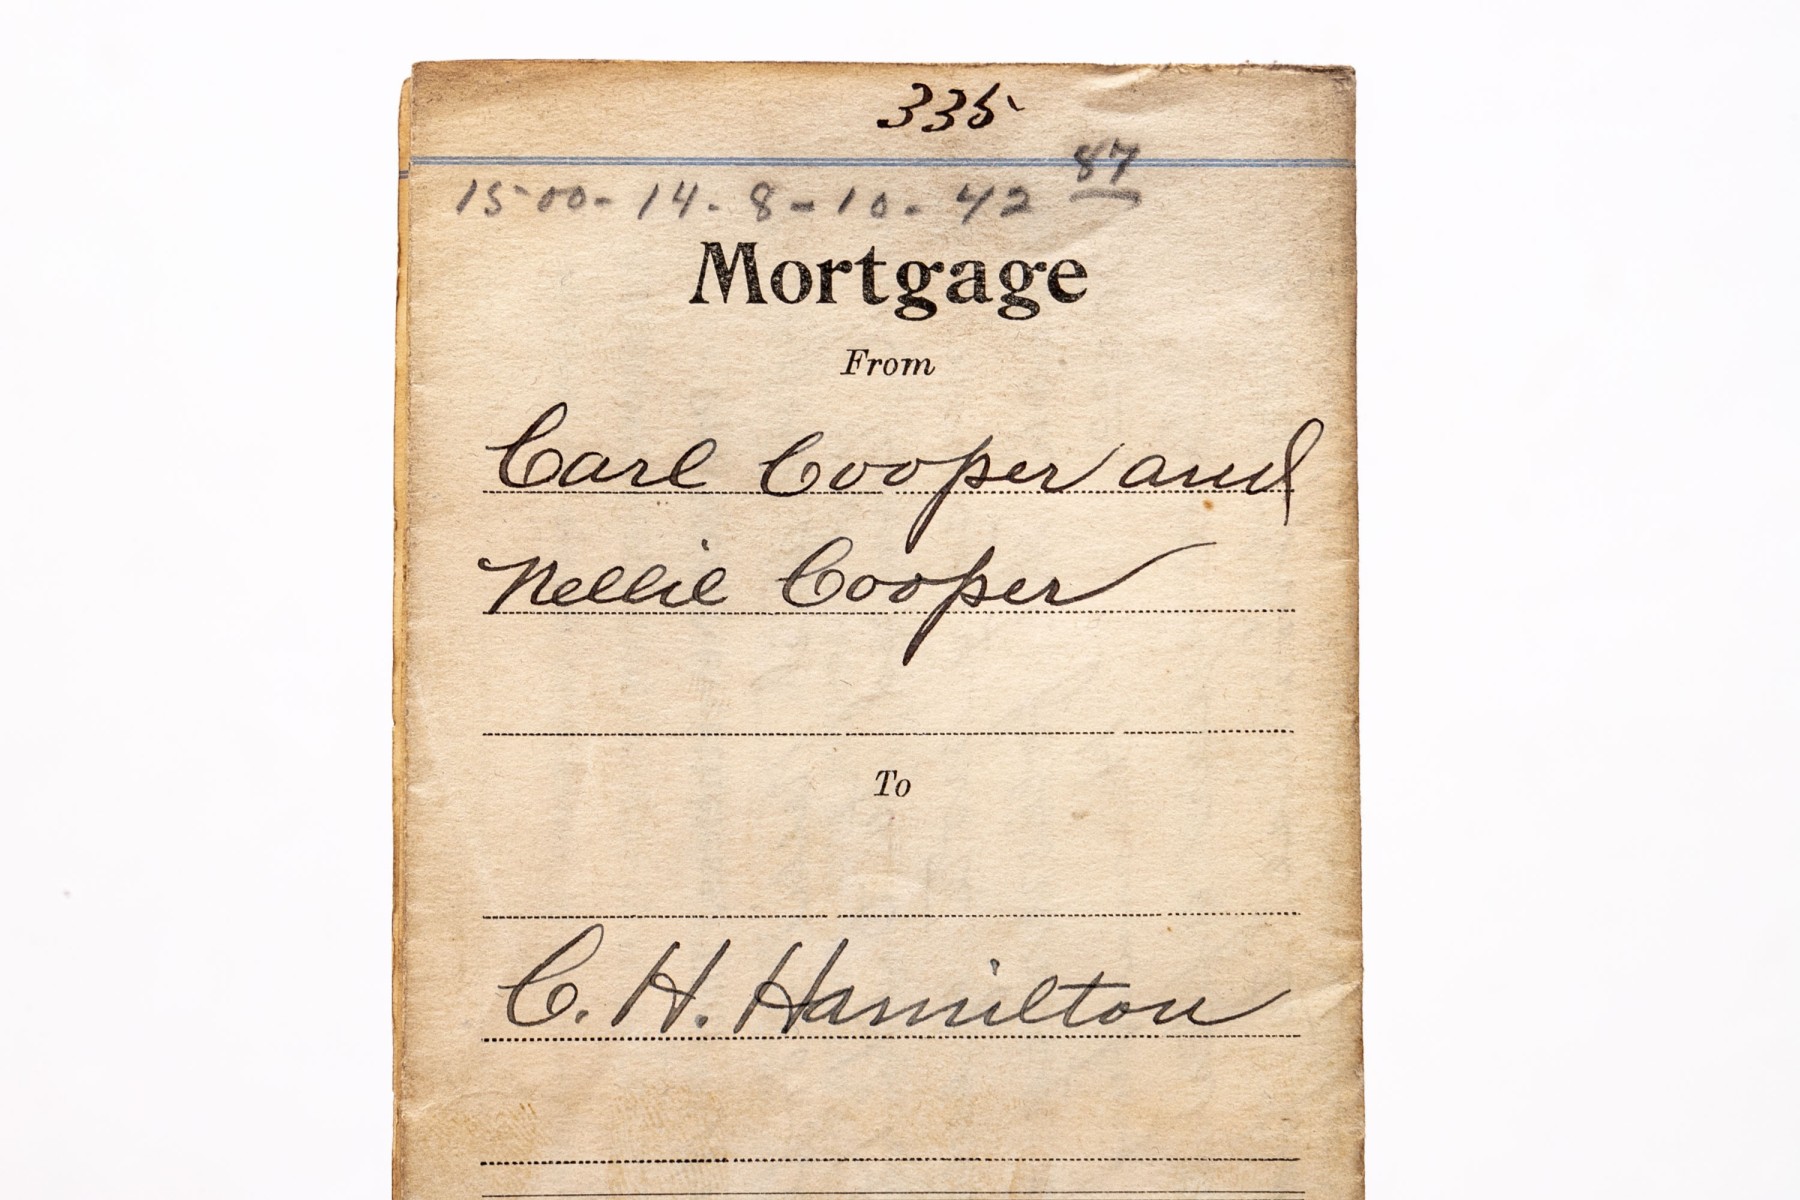 335
87
1500 - 14 - 8 - 10 - 42
Mortgage
From
Carl Cooper and
Nellie Cooper
To
C. H. Hamilton